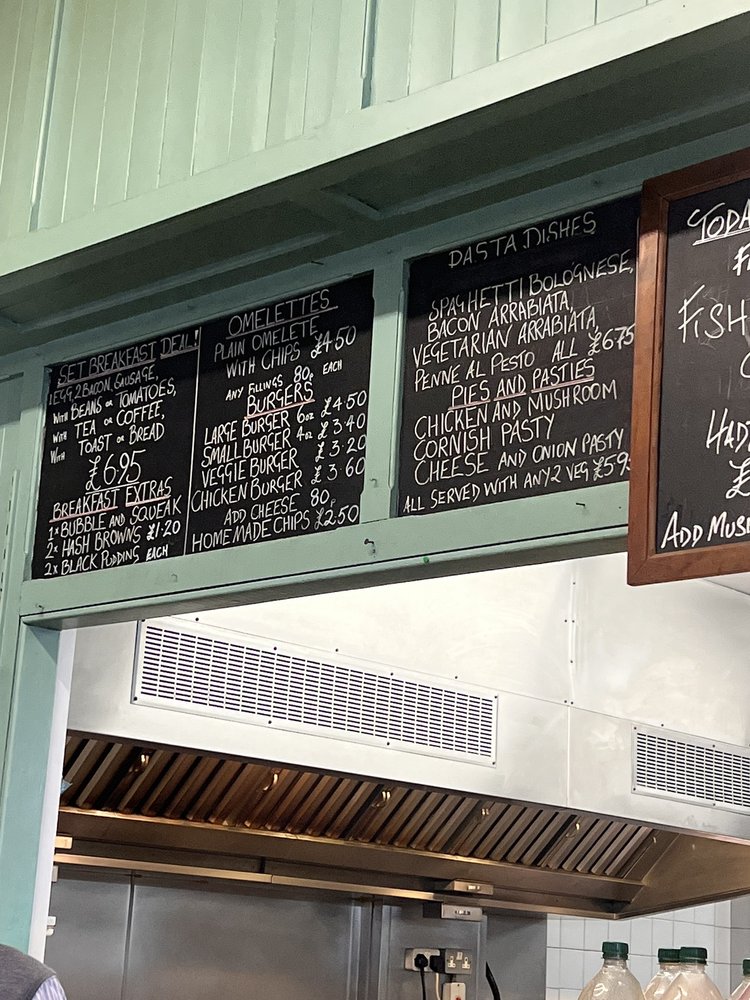 SET BREAKFAST DEAL!
1 EGG, 2 BACON, SAUSAGE,
WITH BEANS OR TOMATOES,
WITH TEA OR COFFEE,
WITH TOAST OR BREAD
£6.95
BREAKFAST EXTRAS
1x BUBBLE AND SQUEAK
2x HASH BROWNS £1.20
2x BLACK PUDDING EACH
OMELETTES
PLAIN OMELETE
WITH CHIPS £4.50
ANY FILLINGS 80p EACH
BURGERS
LARGE BURGER 6oz £4.50
SMALL BURGER 4oz £3.40
VEGGIE BURGER £3.20
CHICKEN BURGER £3.60
ADD CHEESE 80p
HOMEMADE CHIPS £2.50
PASTA DISHES
SPAGHETTI BOLOGNESE,
BACON ARRABIATA,
VEGETARIAN ARRABIATA,
PENNE AL PESTO ALL £6.75
PIES AND PASTIES
CHICKEN AND MUSHROOM
CORNISH PASTY
CHEESE AND ONION PASTY
ALL SERVED WITH ANY 2 VEG £5.9
TODA
FISH
HAD
£
ADD MUS